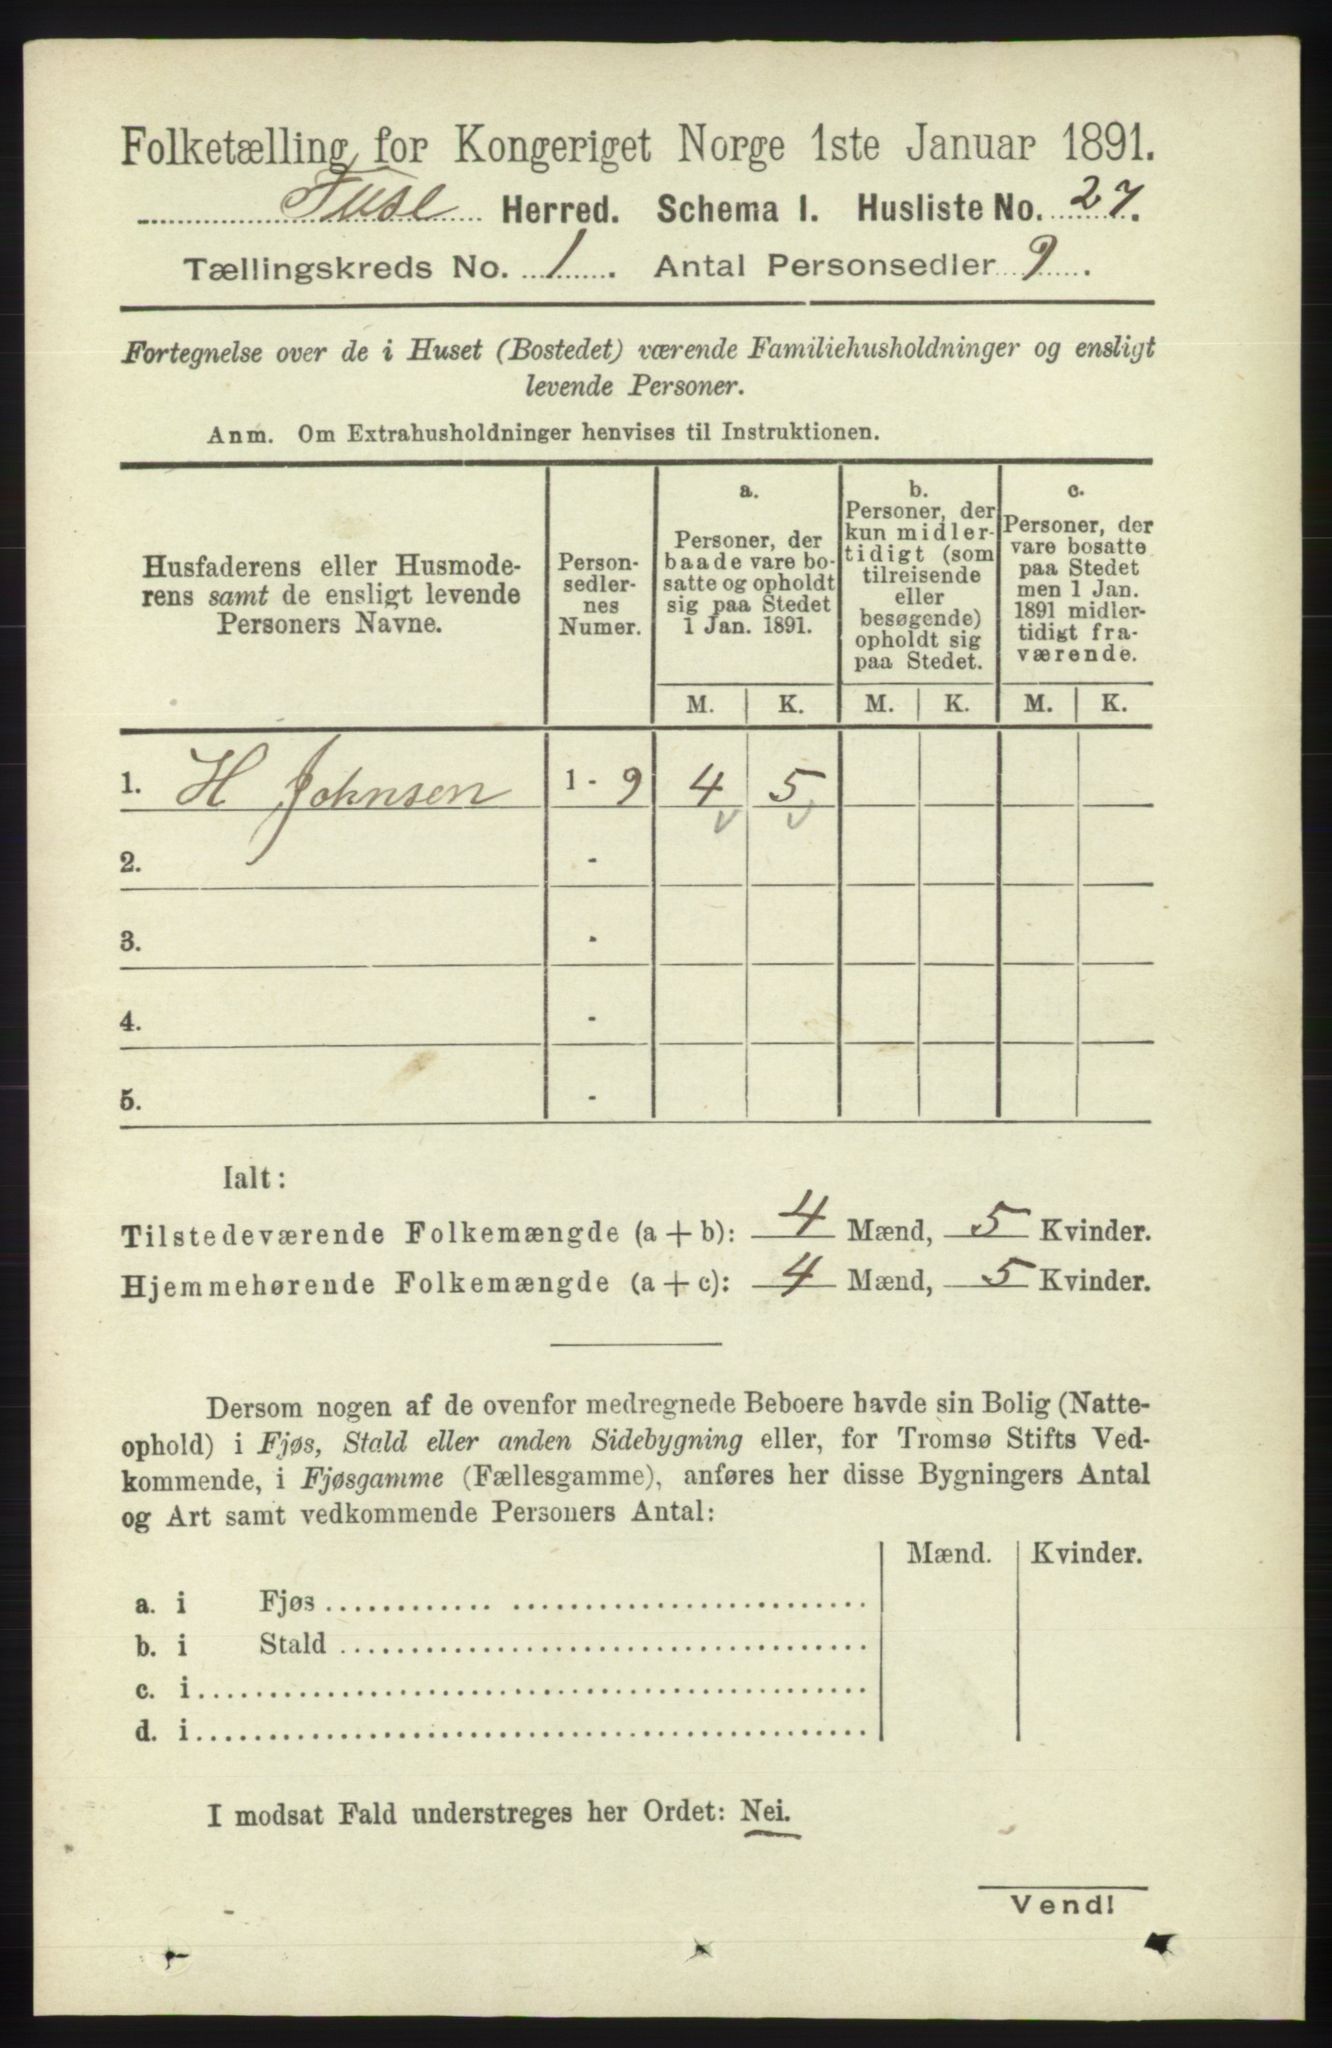 Folketælling for Kongeriget Norge 1ste Januar 1891.
Fuse Herred. Schema I. Husliste No. 27.
Tællingskreds No. 1. Antal Personsedler 9.
Fortegnelse over de i Huset (Bostedet) værende Familiehusholdninger og ensligt
levende Personer.
Anm. Om Extrahusholdninger henvises til Instruktionen.
Husfaderens eller Husmode-
rens samt de ensligt levende
Personers Navne.
Person-
sedler-
nes
Numer.
a.
Personer, der
baade vare bo-
satte og opholdt
sig paa Stedet
1 Jan. 1891.
b.
Personer, der
kun midler-
tidigt (som
tilreisende
eller
besøgende)
opholdt sig
paa Stedet.
c.
Personer, der
vare bosatte
paa Stedet
men 1 Jan.
1891 midler-
tidigt fra-
værende.
M. K. M. K. M. K.
1. H Johnsen 1 - 9 4 5
2. -
3. -
4. -
5. -
Ialt:
Tilstedeværende Folkemængde (a + b): 4 Mænd, 5 Kvinder.
Hjemmehørende Folkemængde (a + c): 4 Mænd, 5 Kvinder.
Dersom nogen af de ovenfor medregnede Beboere havde sin Bolig (Natte-
ophold) i Fjøs, Stald eller anden Sidebygning eller, for Tromsø Stifts Ved-
kommende, i Fjøsgamme (Fællesgamme), anføres her disse Bygningers Antal
og Art samt vedkommende Personers Antal:
Mænd. Kvinder.
a. i Fjøs
b. i Stald
c. i
d. i
I modsat Fald understreges her Ordet: Nei.
Vend!